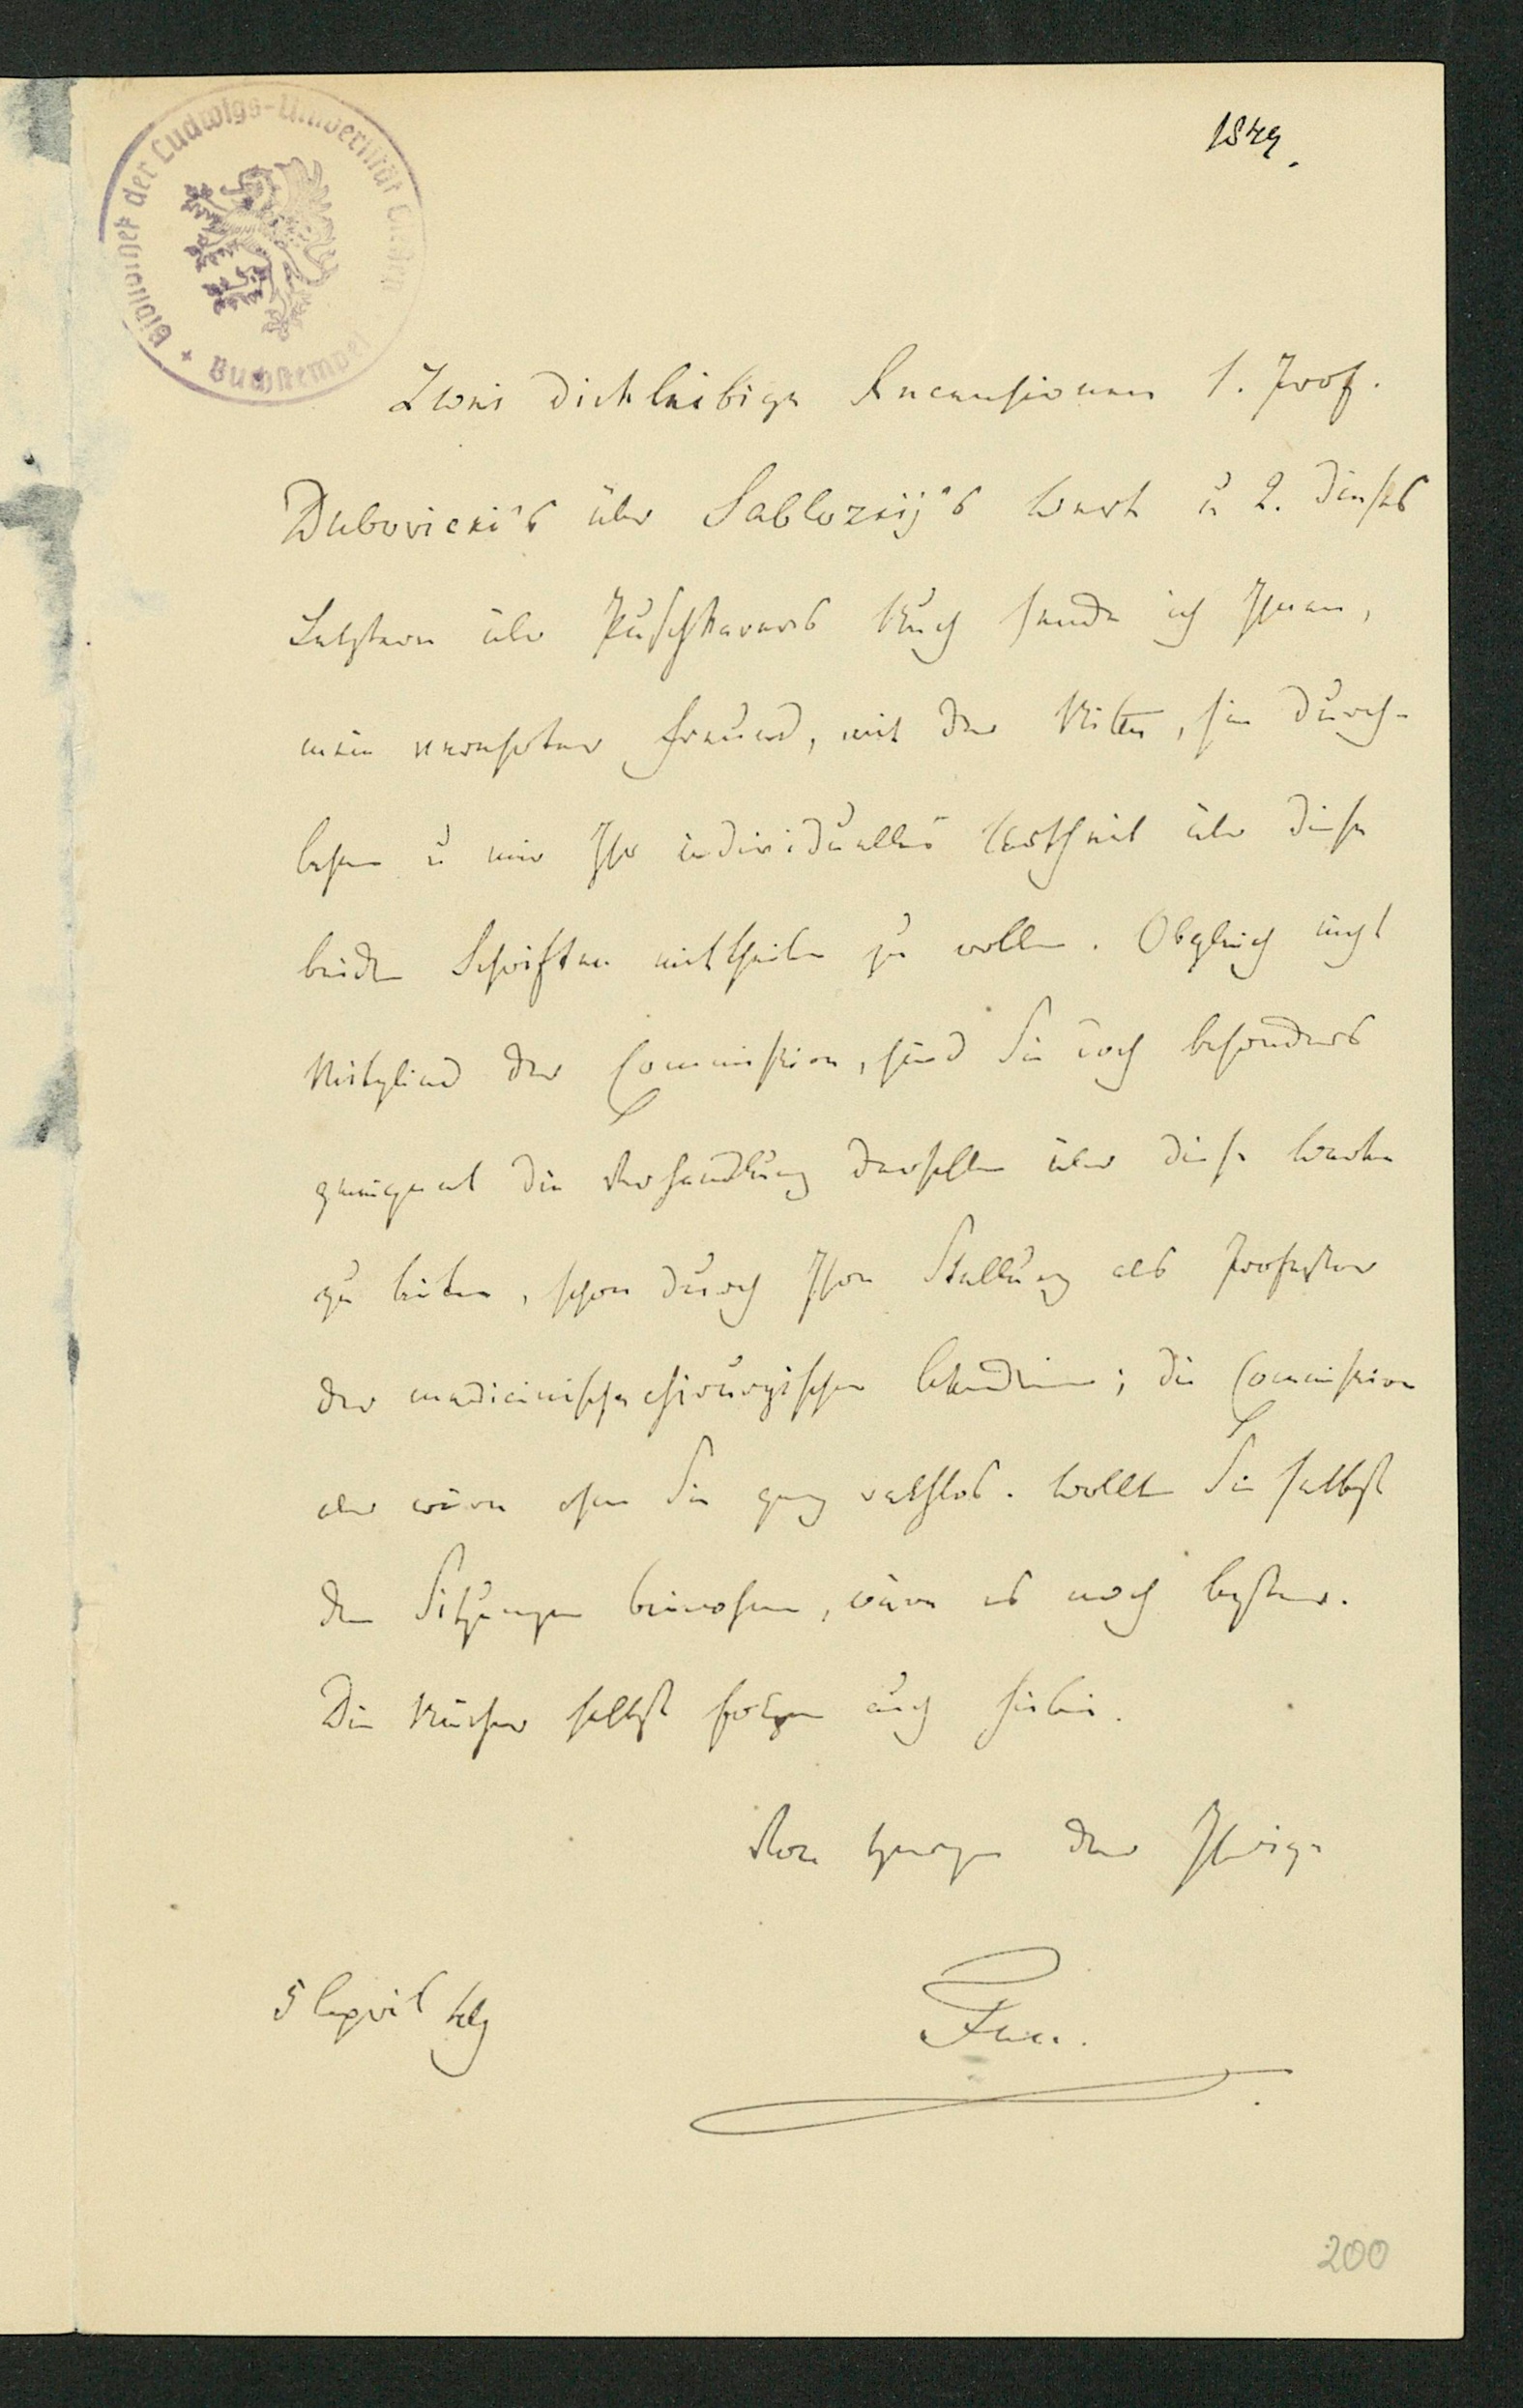 1849.
Bibliothek der Ludwigs-Universität Gießen
+ Buchstempel
Zwei dickleibige Recensionen 1. Prof.
Dubovicki's über Sablozkij's Werk u 2. dieses
Letztern über Puschkarevs Buch sende ich Ihnen,
mein verehrter Freund, mit der Bitte, sie durch-
lesen u mir Ihr individuelles Urtheil über diese
beiden Schriften mittheilen zu wollen. Obgleich nicht
Mitglied der Commission, sind Sie doch besonders
geeignet die Verhandlung derselben über diese Werke
zu leiten, schon durch Ihre Stellung als Professor
der medicinisch chirurgischen Akademie; die Commission
aber wäre ohne Sie ganz rathlos. Wollten Sie selbst
den Sitzungen beiwohnen, wäre es noch besser.
Die Bücher selbst folgen auch hiebei.
Von Herzen der Ihrige
5 April 49
Fuss.
200